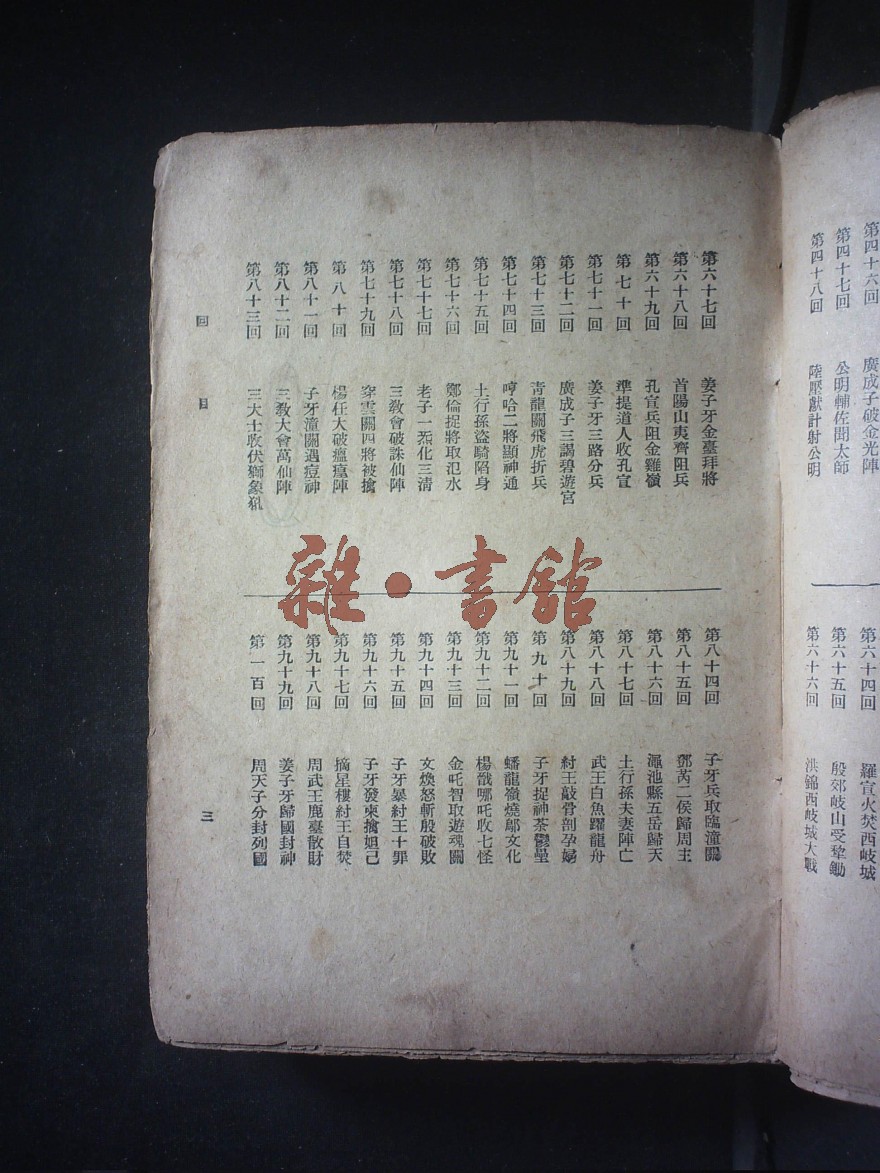 第四十六回　廣成子破金光陣
第四十七回　公明輔佐聞太師
第四十八回　陸壓獻計射公明
第六十四回　羅宣火焚西岐城
第六十五回　殷郊岐山受犂鋤
第六十六回　洪錦西岐城大戰
第六十七回　姜子牙金臺拜將
第六十八回　首陽山夷齊阻兵
第六十九回　孔宣兵阻金雞嶺
第七十回　準提道人收孔宣
第七十一回　姜子牙三路分兵
第七十二回　廣成子三謁碧遊宮
第七十三回　青龍關飛虎折兵
第七十四回　哼哈二將顯神通
第七十五回　土行孫盜騎陷身
第七十六回　鄭倫捉將取汜水
第七十七回　老子一炁化三清
第七十八回　三敎會破誅仙陣
第七十九回　穿雲關四將被擒
第八十回　楊任大破瘟𤼭陣
第八十一回　子牙潼關遇痘神
第八十二回　三敎大會萬仙陣
第八十三回　三大士收伏獅象犼
第八十四回　子牙兵取臨潼關
第八十五回　鄧芮二侯歸周主
第八十六回　澠池縣五岳歸天
第八十七回　土行孫夫妻陣亡
第八十八回　武王白魚躍龍舟
第八十九回　紂王敲骨剖孕婦
第九十回　子牙捉神荼鬱壘
第九十一回　蟠龍嶺燒鄔文化
第九十二回　楊戩哪吒收七怪
第九十三回　金吒智取遊魂關
第九十四回　文煥怒斬殷破敗
第九十五回　子牙暴紂王十罪
第九十六回　子牙發柬擒妲己
第九十七回　摘星樓紂王自焚
第九十八回　周武王鹿臺散財
第九十九回　姜子牙歸國封神
第一百回　周天子分封列國
回目
三
雜·書館